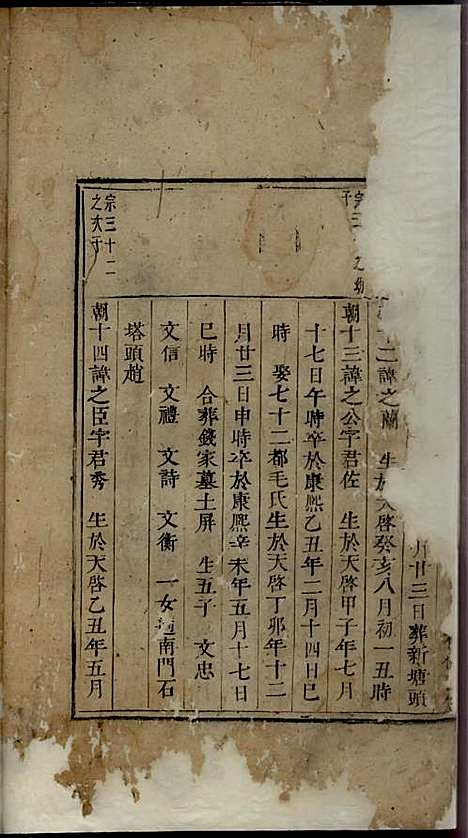 月廿三日葬新塘頭
二諱之蘭 生於天啓癸亥八月初一丑時
宗三 之幼
子
朝十三諱之公字君佐 生於天啓甲子年七月
十七日午時卒於康熙乙丑年二月十四日巳
時 娶七十二都毛氏生於天啓丁卯年十二
月廿三日申時卒於康熙辛未年五月十七日
巳時 合葬錢家墓土屏 生五子 文忠
文信 文禮 文詩 文衡 一女 南門石
塔頭趙
宗三十二
之次子
朝十四諱之臣字君秀 生於天啓乙丑年五月